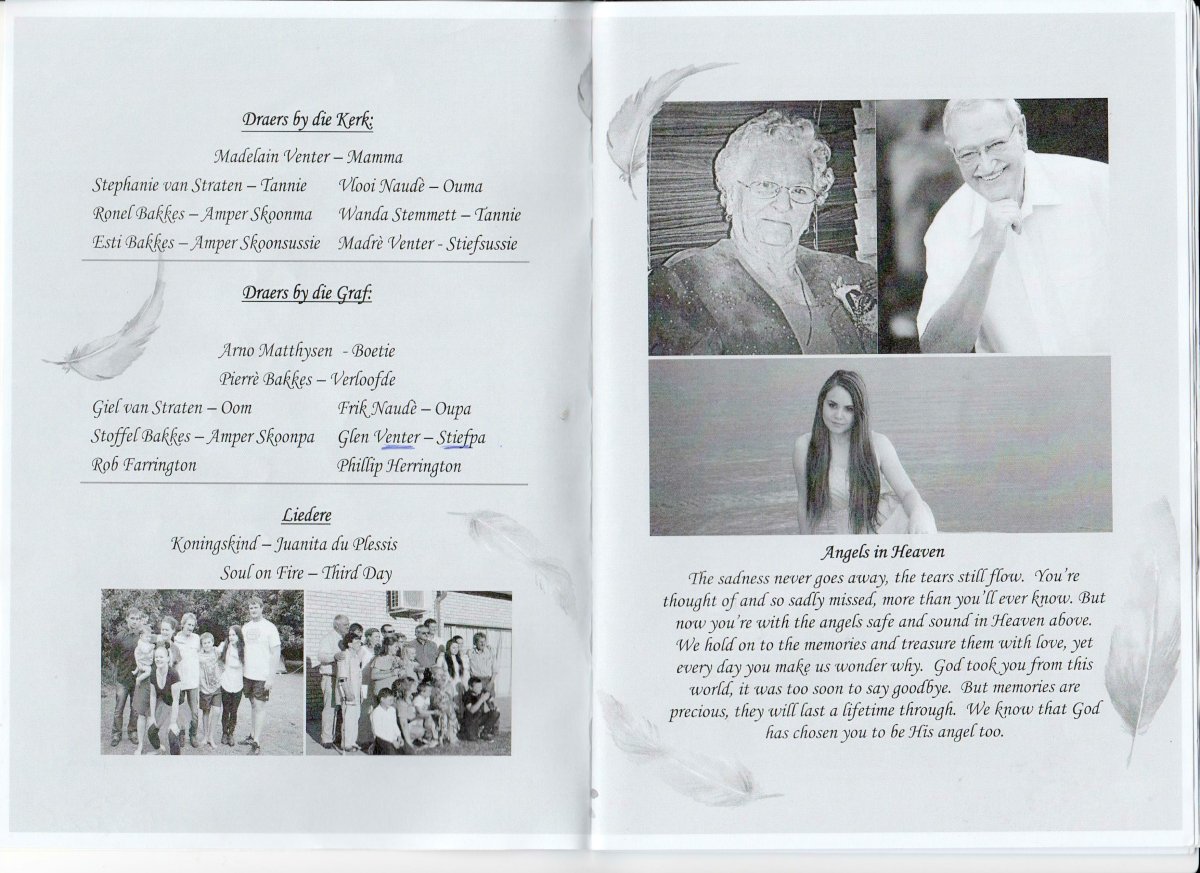 Draers by die Kerk:
Madelain Venter – Mamma
Stephanie van Straten – Tannie Vlooi Naudè – Ouma
Ronel Bakkes – Amper Skoonma Wanda Stemmett – Tannie
Esti Bakkes – Amper Skoonsussie Madrè Venter - Stiefsussie
Draers by die Graf:
Arno Matthysen - Boetie
Pierrè Bakkes – Verloofde
Giel van Straten – Oom Frik Naudè – Oupa
Stoffel Bakkes – Amper Skoonpa Glen Venter – Stiefpa
Rob Farrington Phillip Herrington
Liedere
Koningskind – Juanita du Plessis
Soul on Fire – Third Day
Angels in Heaven
The sadness never goes away, the tears still flow. You're
thought of and so sadly missed, more than you'll ever know. But
now you're with the angels safe and sound in Heaven above.
We hold on to the memories and treasure them with love, yet
every day you make us wonder why. God took you from this
world, it was too soon to say goodbye. But memories are
precious, they will last a lifetime through. We know that God
has chosen you to be His angel too.